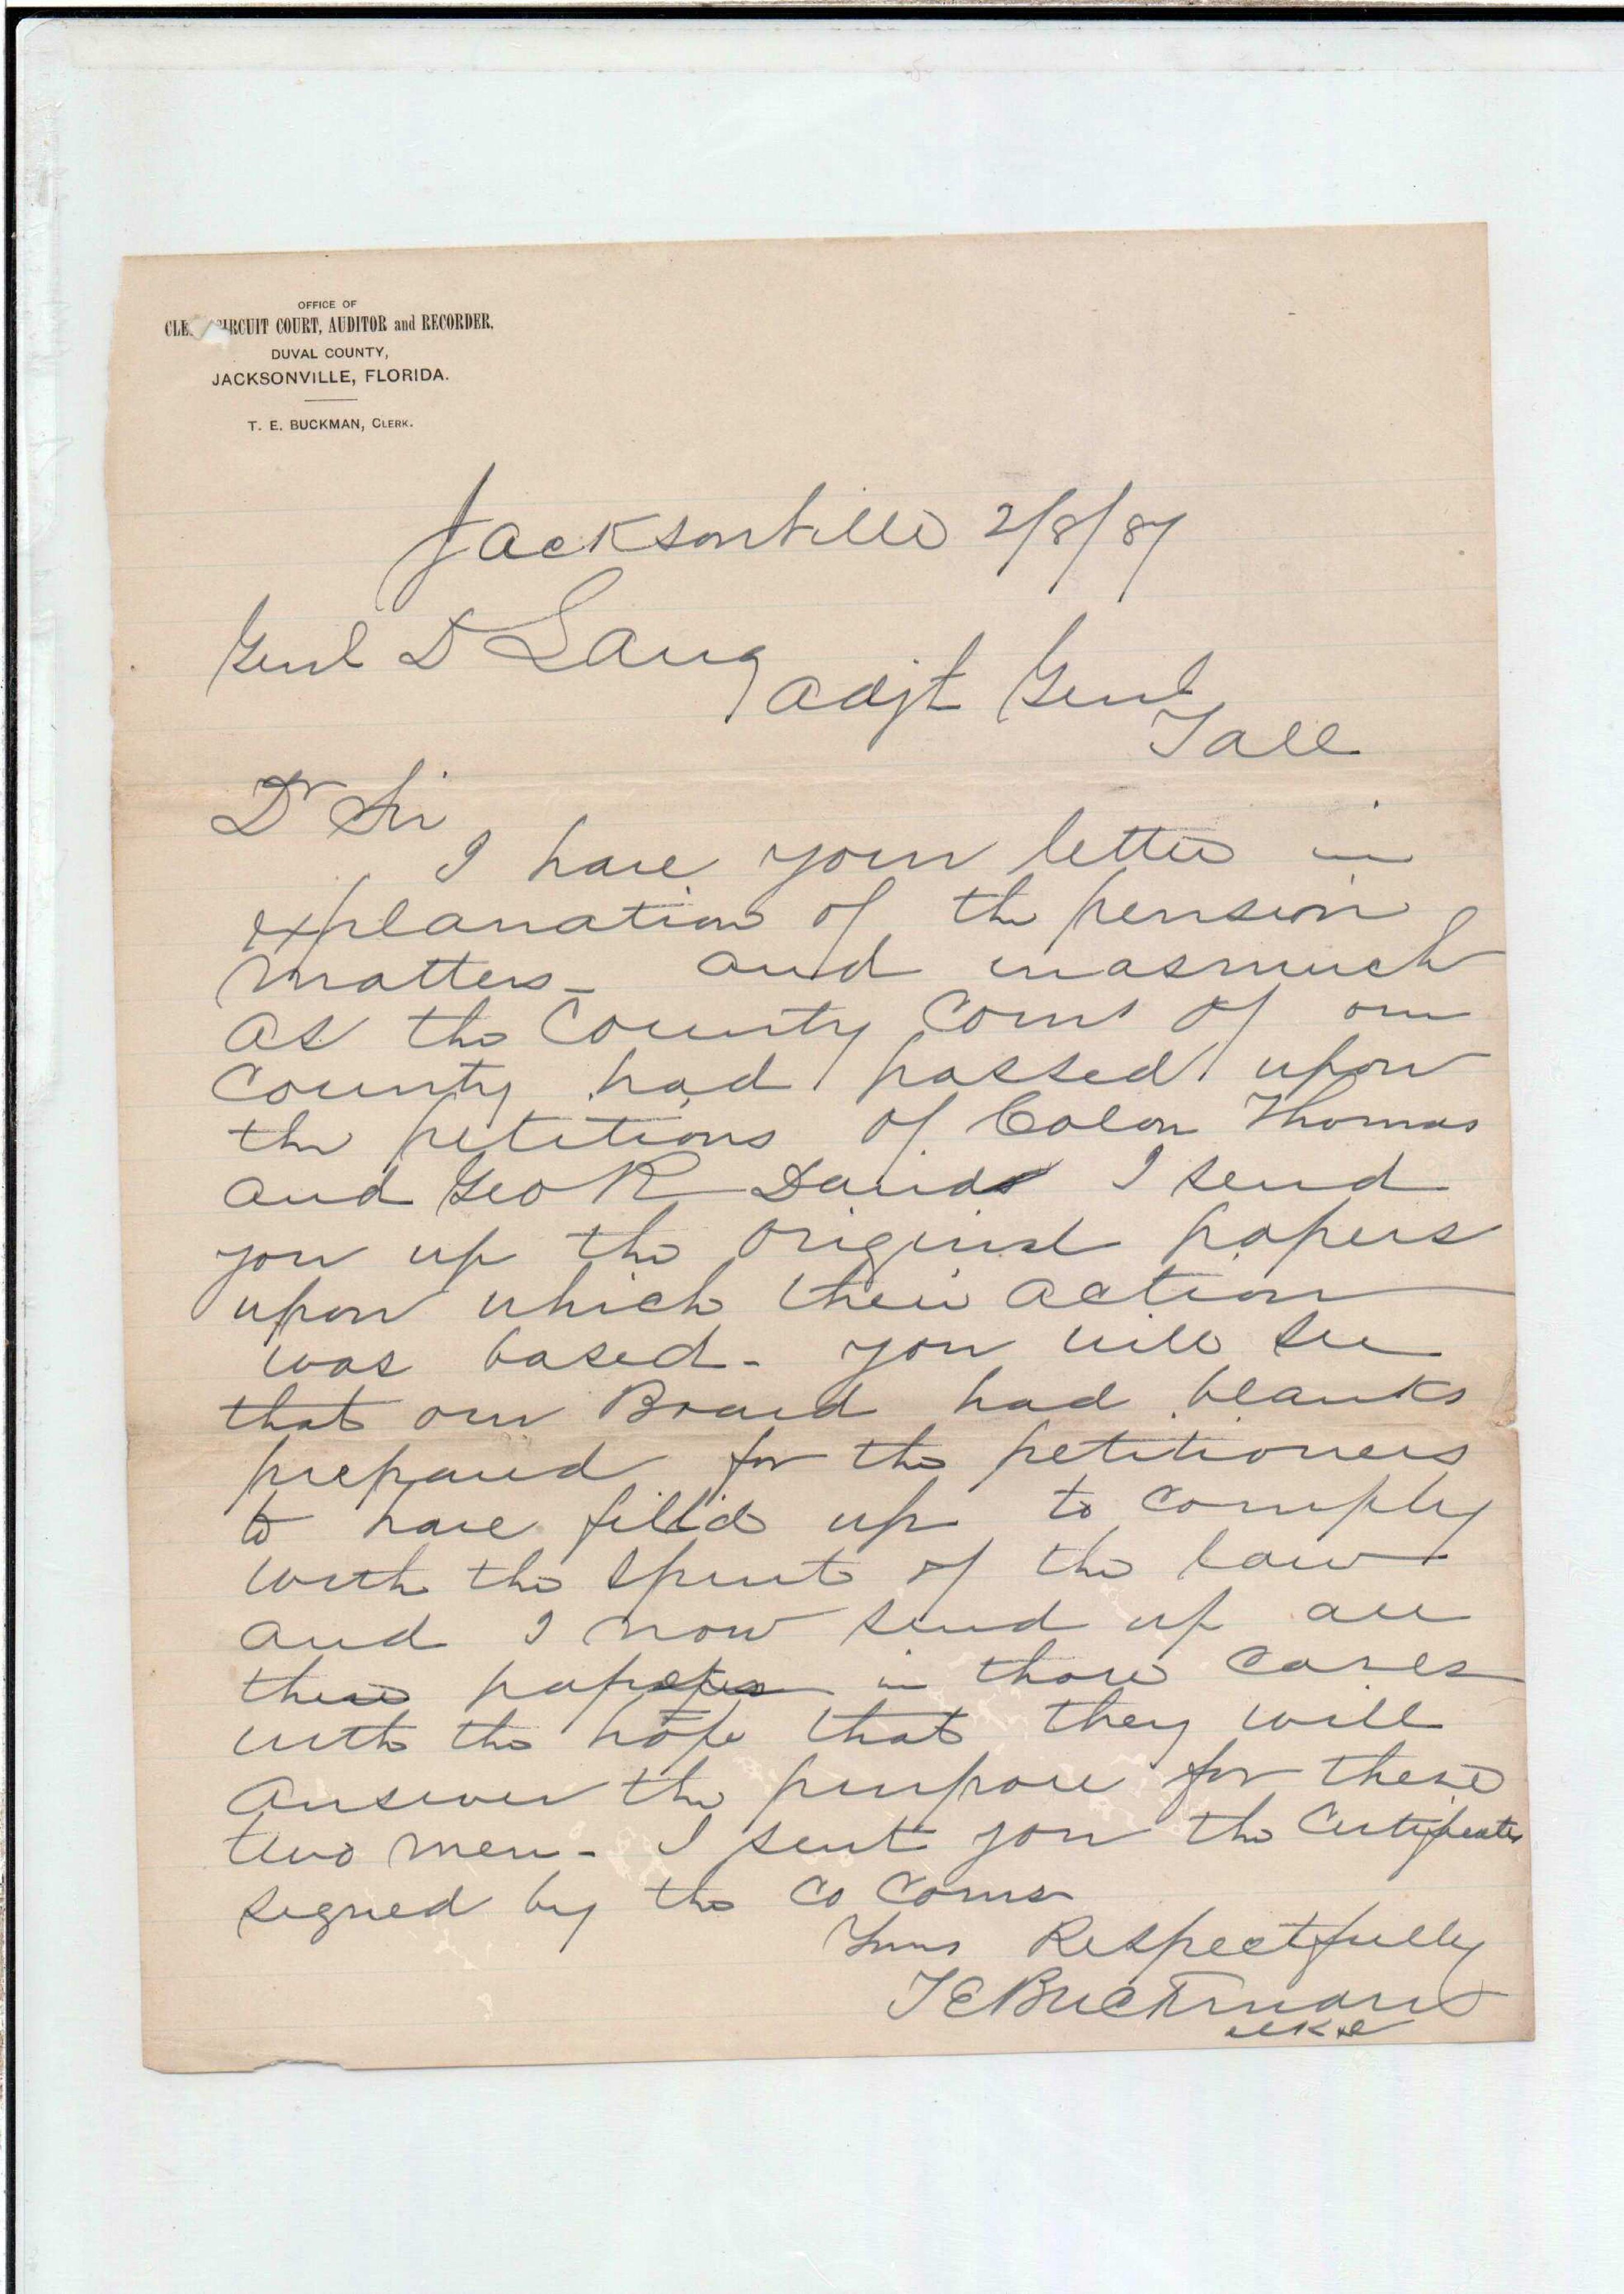 OFFICE OF
CLE CIRCUIT COURT, AUDITOR and RECORDER.
DUVAL COUNTY,
JACKSONVILLE, FLORIDA.
T. E. BUCKMAN, CLERK.
Jacksonville 2/8/87
Genl D Lang
Adjt Genl
Tall
Dr Sir
I have your letter in
explanation of the pension
matters - and inasmuch
as the County Coms of our
County had passed upon
the petitions of Colon Thomas
and Geo R Davids I send
you up the original papers
upon which their action
was based - you will see
that our Board had blanks
prepared for the petitioners
to have filled up to comply
with the spirit of the law
and I now send up all
these papers in those cases
with the hope that they will
answer the purpose for these
two men - I sent you the Certificates
signed by the Co Coms
Yours Respectfully
T E Buckman